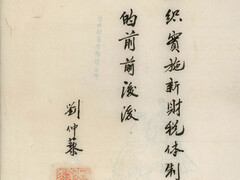 织实施新财税体制
的前前後後
劉仲藜